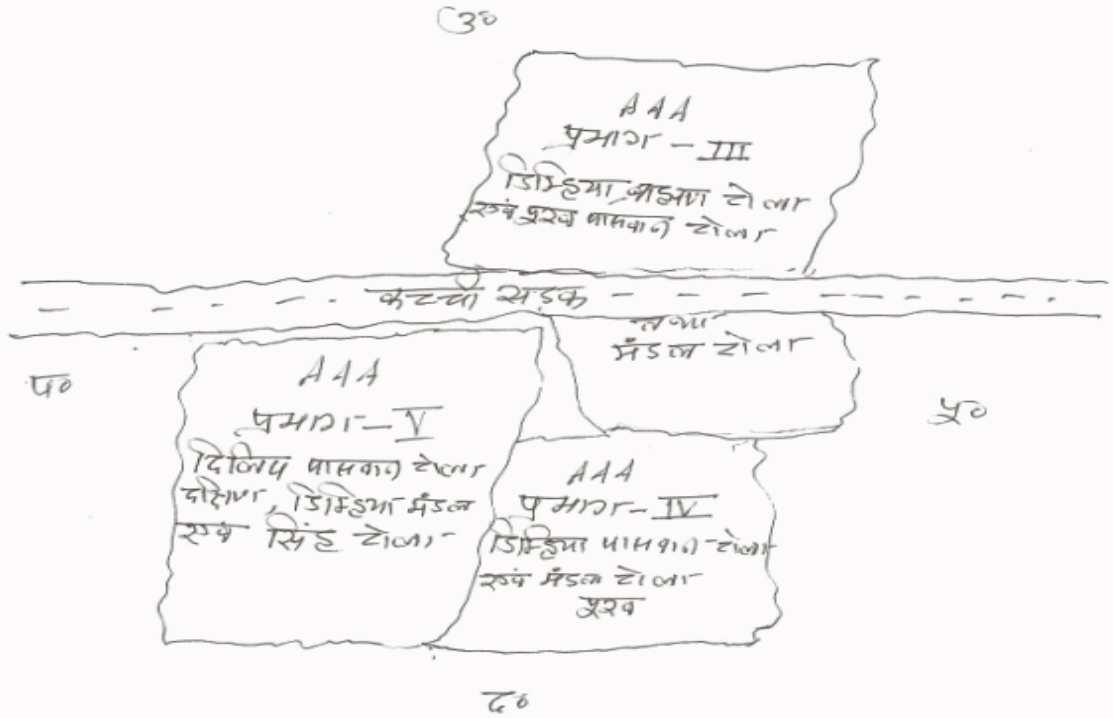 उ०
AAA
प्रभाग - III
डिम्हिया, ब्राह्मण टोला
एवं पुरब पासवान टोला
कच्ची सड़क
तथा
मंडल टोला
प०
पू०
AAA
प्रभाग - V
दिलिप पासवान टोला
दक्षिण, डिम्हिया मंडल
एवं सिंह टोला
AAA
प्रभाग - IV
डिम्हिया पासवान टोला
एवं मंडल टोला
पुरब
द०